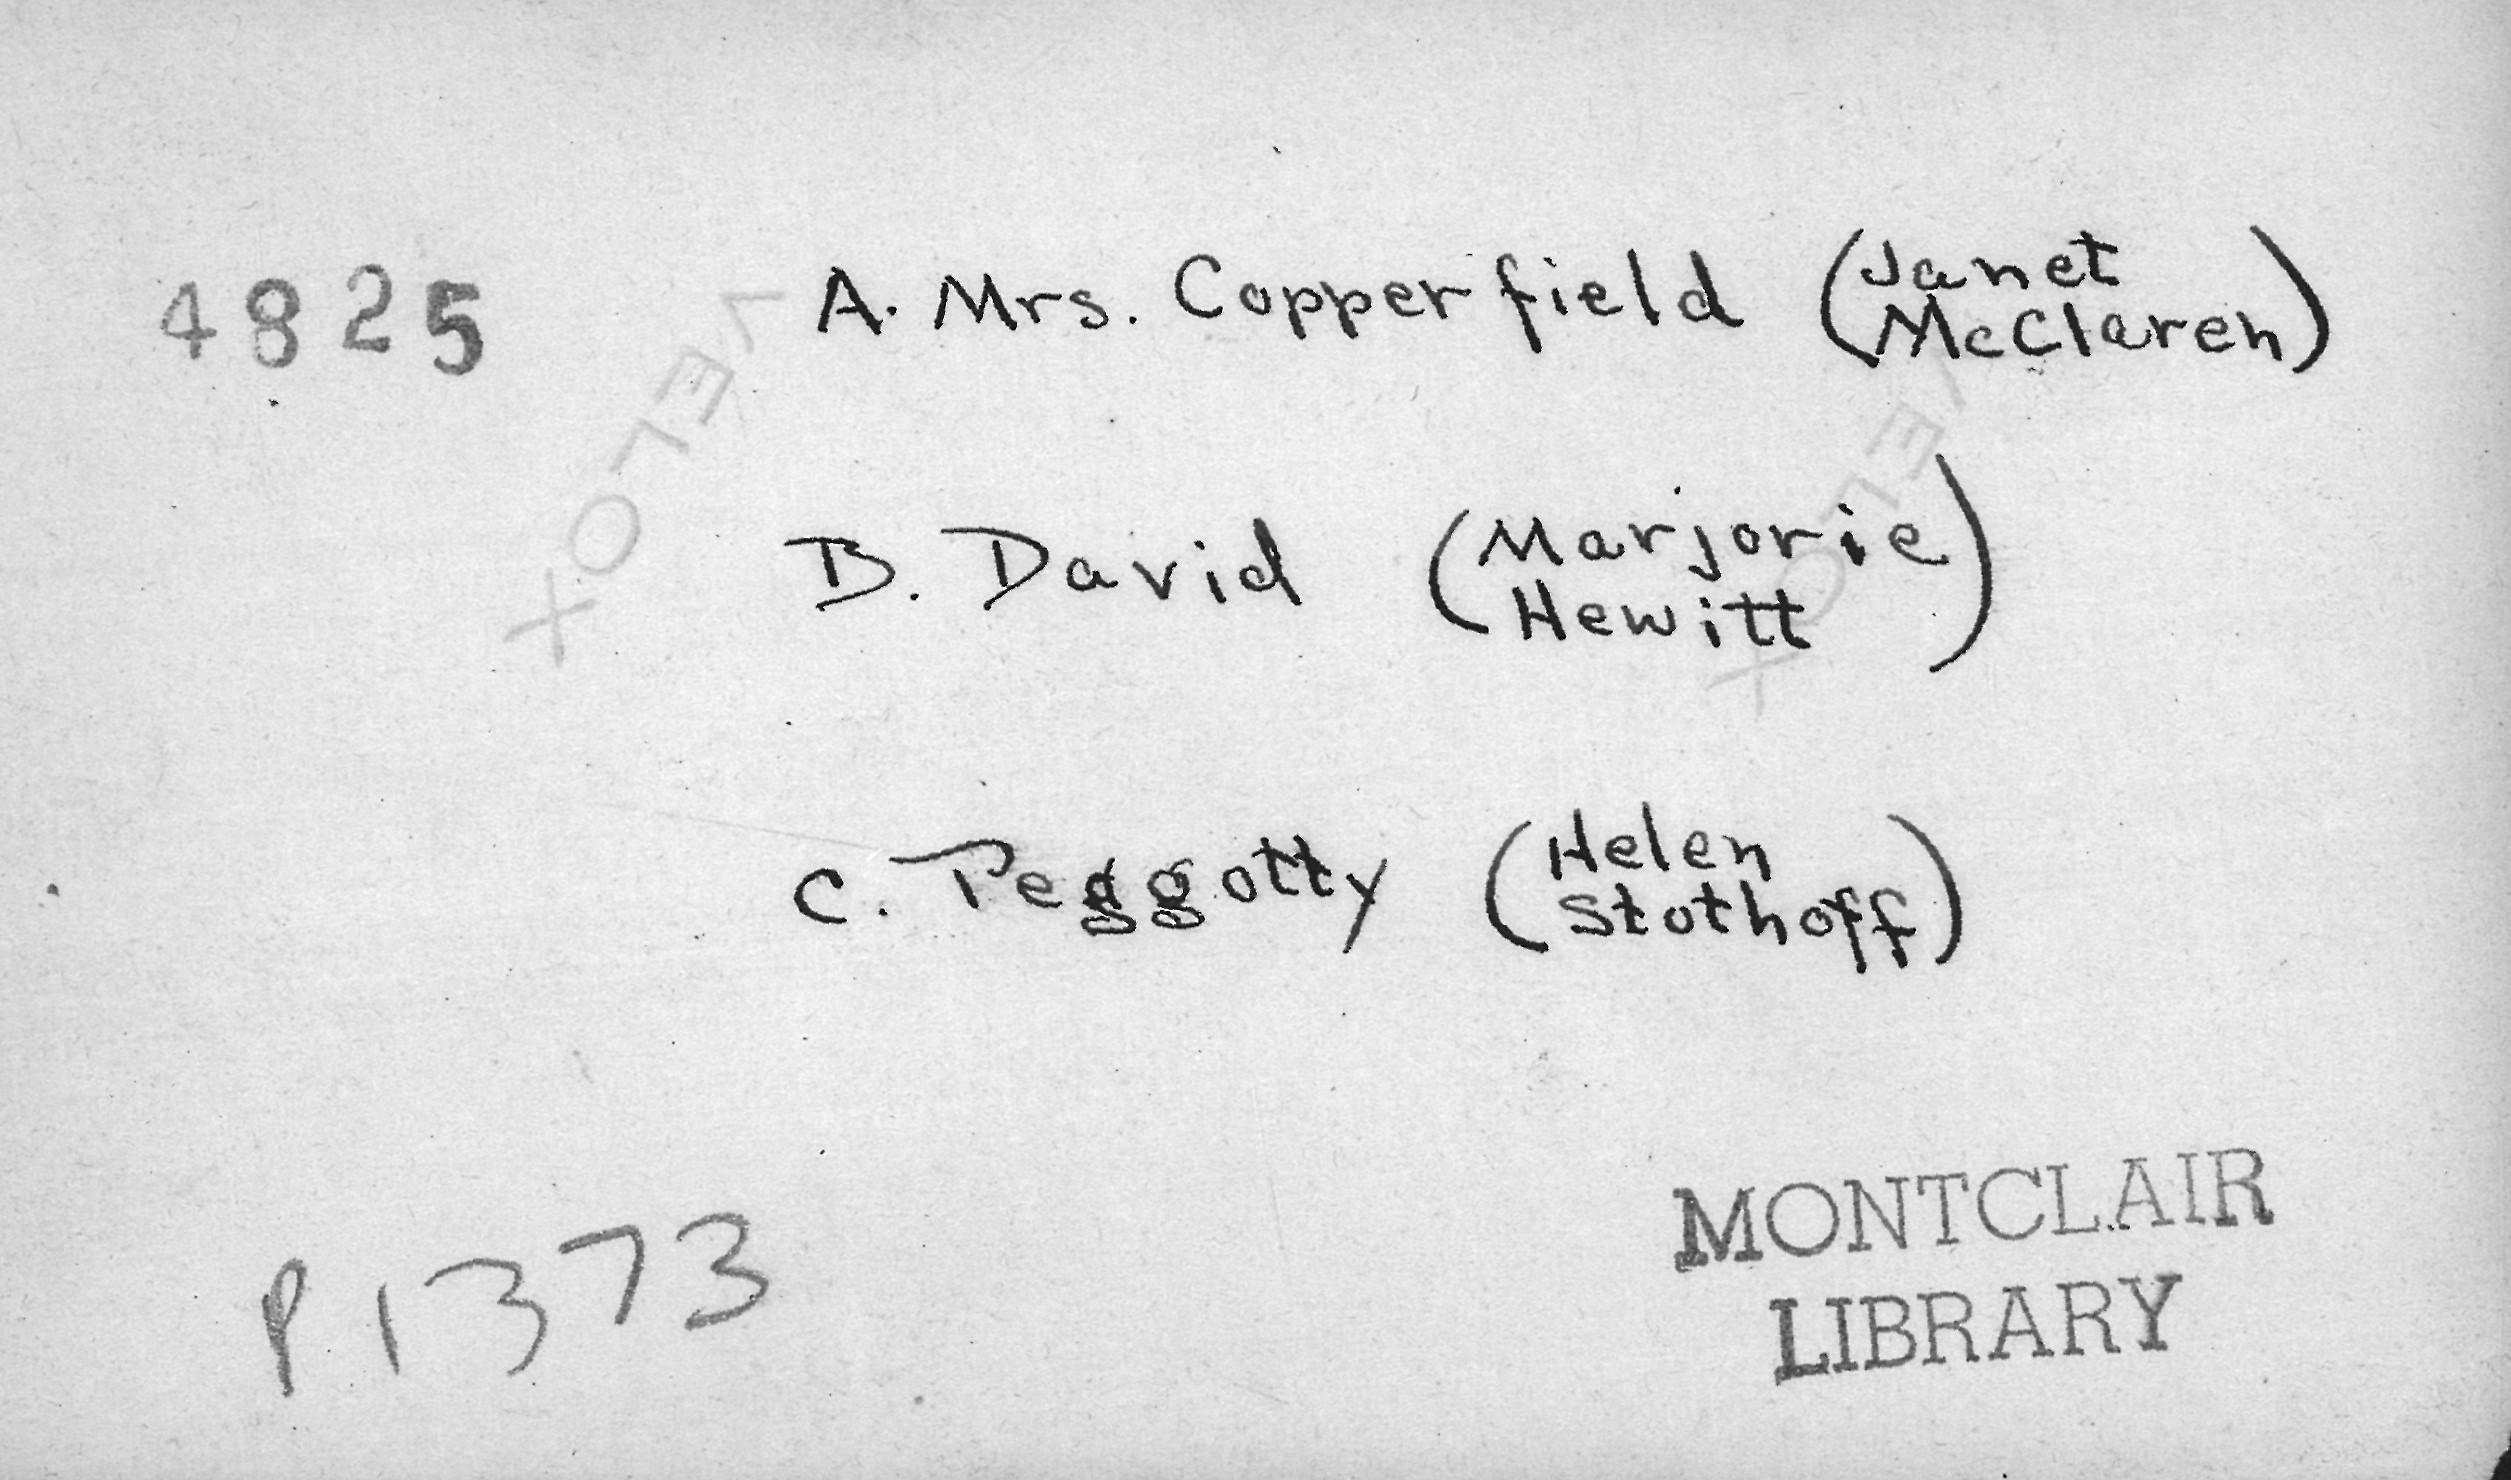 4825
VELOX
VELOX
A. Mrs. Copperfield (Janet
McClaren)
B. David (Marjorie
Hewitt)
C. Peggotty (Helen
Stothoff)
P1373
MONTCLAIR
LIBRARY